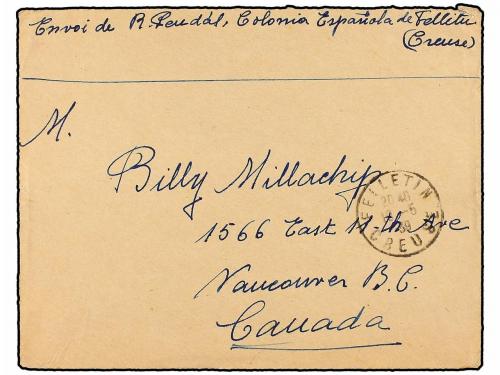 Envoi de R. Peudál, Colonia Española de Felliti
(Creuse)
M.
Billy Millachip
1566 East 11-th Ave
Vancouver B.C.
Canada
FELLETIN
20 40
CREUSE